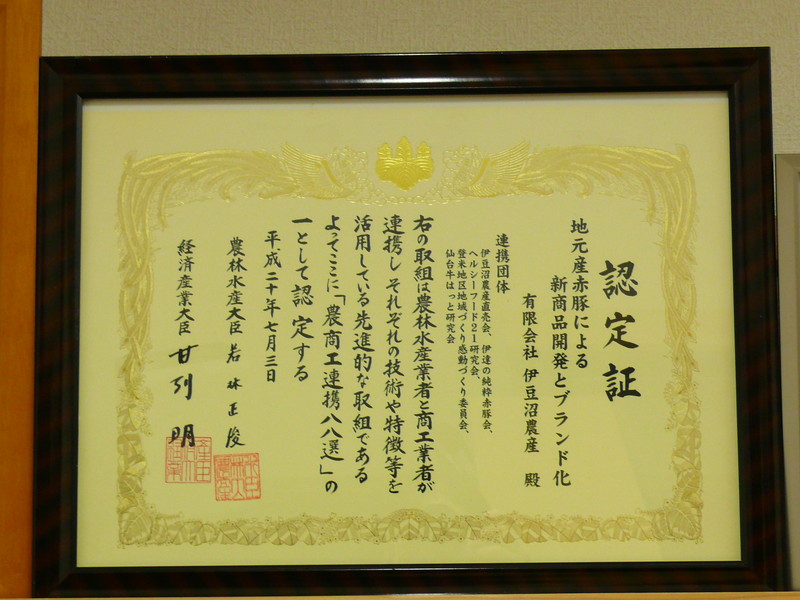 認定証
地元産赤豚による
新商品開発とブランド化
有限会社 伊豆沼農産 殿
連携団体
伊豆沼農産直売会、伊達の純粋赤豚会、
ヘルシーフード21研究会、
登米地区地域づくり感動づくり委員会、
仙台牛はっと研究会
右の取組は農林水産業者と商工業者が
連携し それぞれの技術や特徴等を
活用している先進的な取組である
よってここに「農商工連携八八選」の
一として認定する
平成二十年七月三日
農林水産大臣 若林正俊
経済産業大臣 甘利明